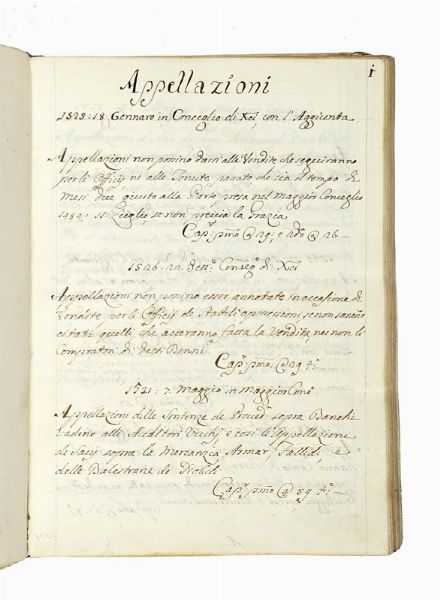 1
Appellazioni
1525:18 Gennaro in Conseglio di Xci, con l'Aggiunta
Appellazioni non possino darsi alle Vendite che seguiranno
per li Officij ne alle Tenute passato che sia il tempo di
mesi due giusto alla Parte presa nel maggior Conseglio
1484: Luglio, se non precia la Grazia
Cap. pmo @ 29; e 2do @ 26
1526. 22. Conseg. di Xci
Appellazioni non possino esser annotate in occasione di
Vendite per li Officij de Stabili o possessioni se non saranno
citati quelli che averanno fatta la Vendita ne non li
Compratori di detti Benni
Cap. pmo: @ 29
1721: 7. Maggio in Maggior Cons
Appellazioni delle Sentenze de Proved. sopra Banchi
Vadino alli Auditori Vecchj e così le Appellazione
de Savij sopra la Mercanzia, Armar, Fallidi, e
delle Balestrarie de Nobili
Cap. pmo @ 89